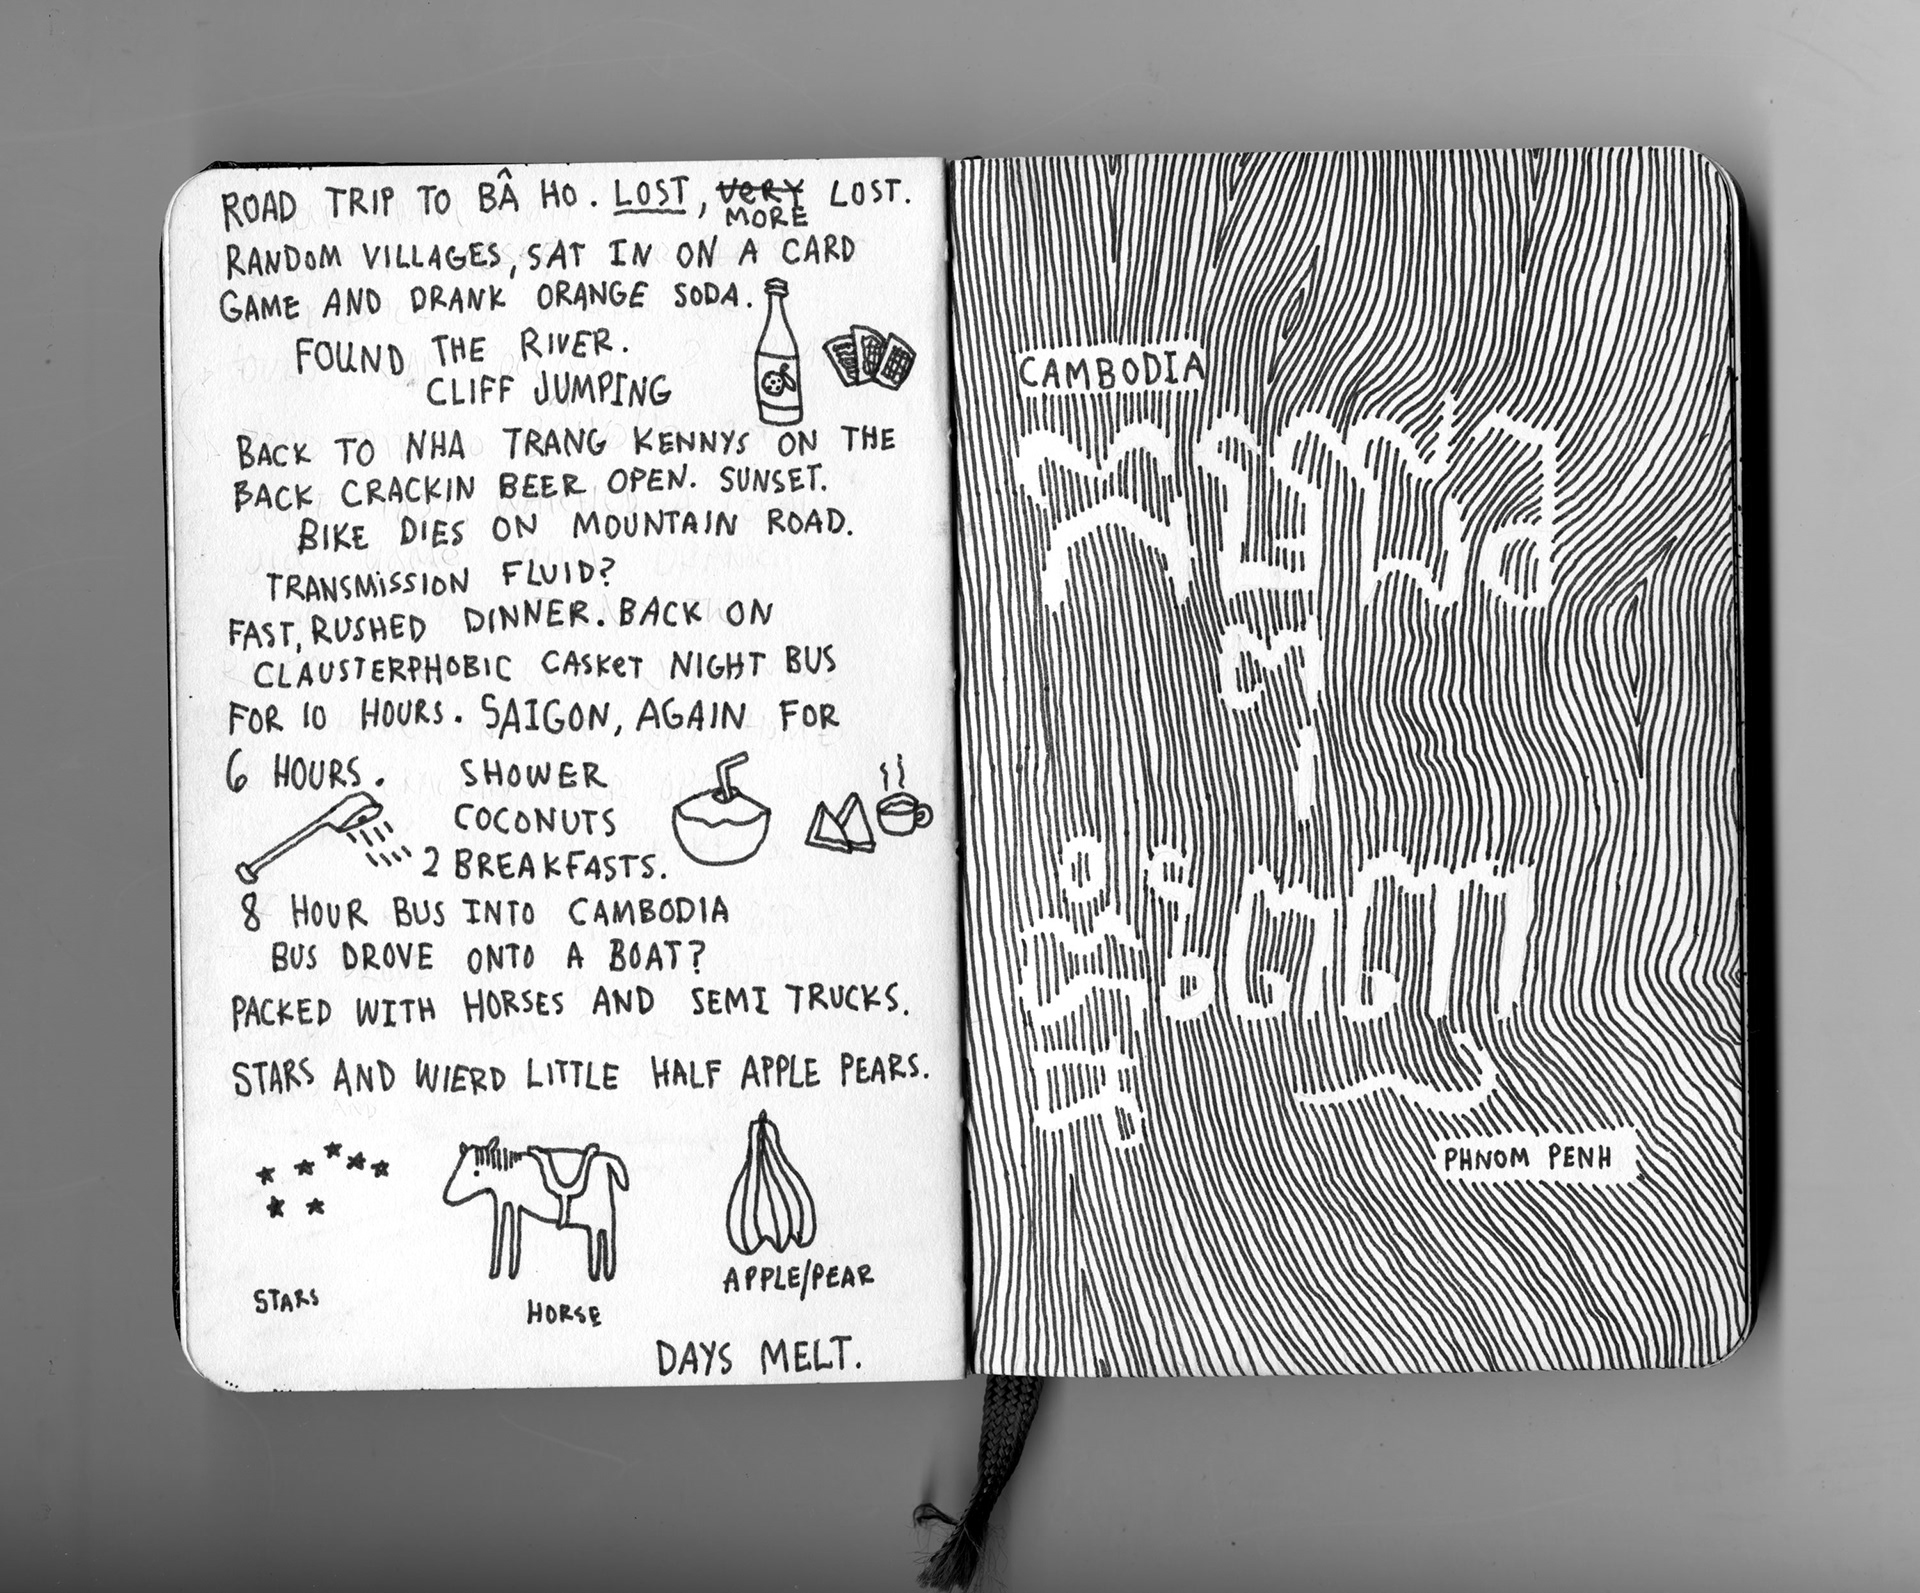 ROAD TRIP TO BÂ HO. LOST, VeRY LOST.
MORE
RANDOM VILLAGES, SAT IN ON A CARD
GAME AND DRANK ORANGE SODA.
FOUND THE RIVER.
CLIFF JUMPING
BACK TO NHA TRANG KENNYS ON THE
BACK CRACKIN BEER OPEN. SUNSET.
BIKE DIES ON MOUNTAIN ROAD.
TRANSMISSION FLUID?
FAST, RUSHED DINNER. BACK ON
CLAUSTERPHOBIC CASKET NIGHT BUS
FOR 10 HOURS. SAIGON, AGAIN FOR
6 HOURS. SHOWER
COCONUTS
2 BREAKFASTS.
8 HOUR BUS INTO CAMBODIA
BUS DROVE ONTO A BOAT?
PACKED WITH HORSES AND SEMI TRUCKS.
STARS AND WIERD LITTLE HALF APPLE PEARS.
STARS
HORSE
APPLE/PEAR
DAYS MELT.
CAMBODIA
កម្ពុជា
ភ្នំពេញ
PHNOM PENH